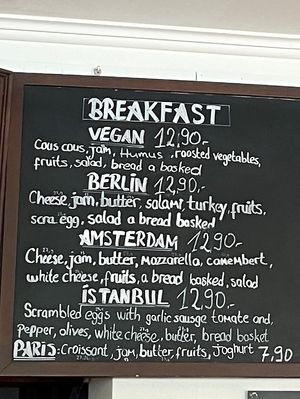 BREAKFAST
VEGAN 12,90.-
Cous cous, jam, Humus, roasted vegetables,
fruits, salad, bread a basked
BERLİN 12,90.-
Cheese, jam, butter, salami turkey, fruits,
scra egg, salad a bread basked
AMSTERDAM 12,90.-
Cheese, jam, butter, Mozzarella, camembert,
white cheese, fruits, a bread basked, salad
İSTANBUL 12,90.-
Scrambled eggs with garlic sausge tomato and,
pepper, olives, white cheese, butter, bread basket
PARİS: Croissant, jam, butter, fruits, Joghurt 7,90